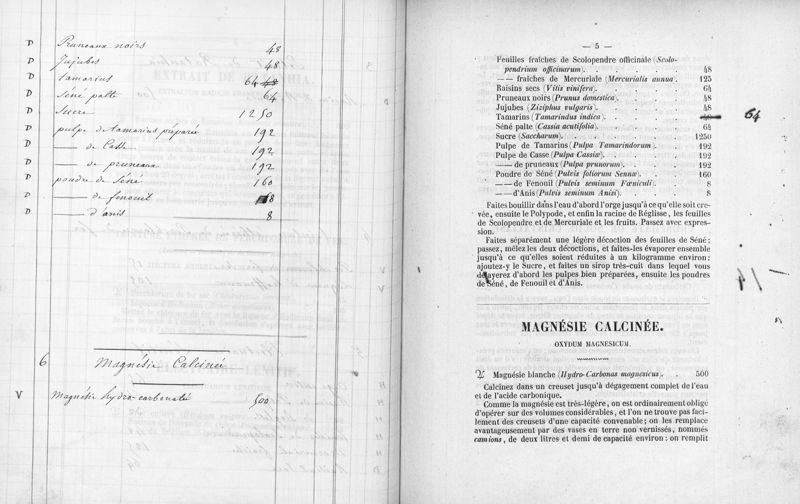 D Pruneaux noirs 48
D Jujubes 48
D tamarins 64 48
D Séné palte 64
D Sucre 1250
D pulpe de tamarins préparée 192
D — de Casse 192
D — de pruneaux 192
D poudre de Séné 160
D — de fenouil 8
D — d'anis 8
6 Magnésie Calcinée
V Magnésie hydro-carbonatée 500
— 5 —
Feuilles fraîches de Scolopendre officinale (Scolo-
pendrium officinarum) . . . . . . 48
— — fraîches de Mercuriale (Mercurialis annua) . 125
Raisins secs (Vitis vinifera) . . . . . 64
Pruneaux noirs (Prunus domestica) . . . . 48
Jujubes (Ziziphus vulgaris) . . . . . 48
Tamarins (Tamarindus indica) . . . . . 48 64
Séné palte (Cassia acutifolia) . . . . . 64
Sucre (Saccharum) . . . . . . 1250
Pulpe de Tamarins (Pulpa Tamarindorum) . . . 192
Pulpe de Casse (Pulpa Cassiæ) . . . . . 192
— de pruneaux (Pulpa prunorum) . . . . 192
Poudre de Séné (Pulvis foliorum Sennæ) . . . 160
— — de Fenouil (Pulvis seminum Fœniculi) . . 8
— — d'Anis (Pulvis seminum Anisi) . . . . 8
Faites bouillir dans l'eau d'abord l'orge jusqu'à ce qu'elle soit cre-
vée, ensuite le Polypode, et enfin la racine de Réglisse, les feuilles
de Scolopendre et de Mercuriale et les fruits. Passez avec expres-
sion.
Faites séparément une légère décoction des feuilles de Séné;
passez, mêlez les deux décoctions, et faites-les évaporer ensemble
jusqu'à ce qu'elles soient réduites à un kilogramme environ:
ajoutez-y le Sucre, et faites un sirop très-cuit dans lequel vous
délayerez d'abord les pulpes bien préparées, ensuite les poudres
de Séné, de Fenouil et d'Anis.
MAGNÉSIE CALCINÉE.
OXYDUM MAGNESICUM.
♃ Magnésie blanche (Hydro-Carbonas magnesicus) . . 500
Calcinez dans un creuset jusqu'à dégagement complet de l'eau
et de l'acide carbonique.
Comme la magnésie est très-légère, on est ordinairement obligé
d'opérer sur des volumes considérables, et l'on ne trouve pas faci-
lement des creusets d'une capacité convenable; on les remplace
avantageusement par des vases en terre non vernissés, nommés
camions, de deux litres et demi de capacité environ: on remplit